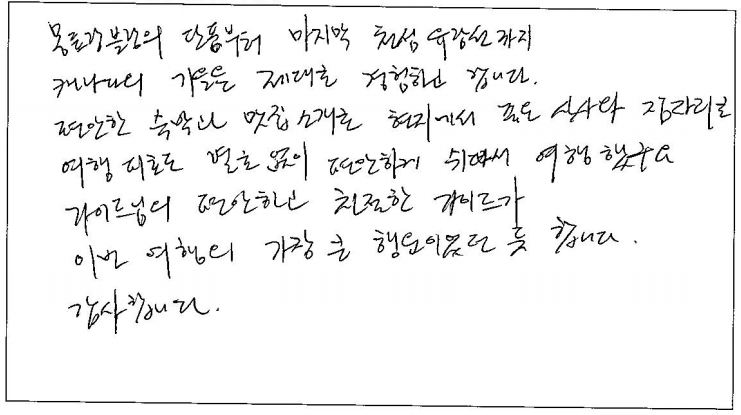 몽트랑블랑의 단풍부터 마지막 천섬 유람선까지
캐나다의 가을을 제대로 경험하고 갑니다.
편안한 숙박과 맛집 소개로 현지에서 좋은 식사와 잠자리로
여행 피로도 별로 없이 편안하게 쉬면서 여행 했구요
가이드님의 편안하고 친절한 가이드가
이번 여행의 가장 큰 행운이었던 듯 합니다.
감사합니다.